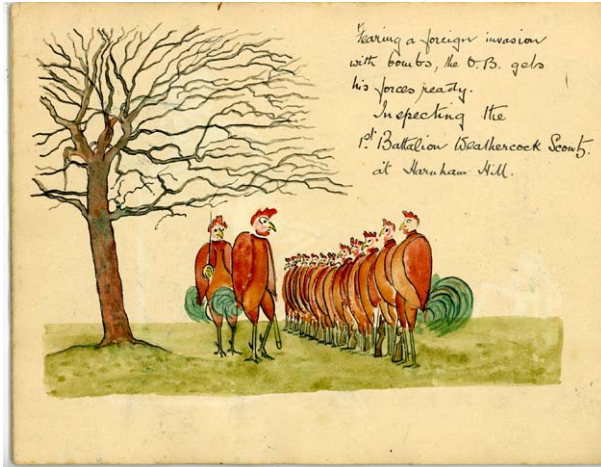 Fearing a foreign invasion
with bombs, the O.B. gets
his forces ready.
Inspecting the
1st Battalion Weathercock Scouts.
at Harnham Hill.